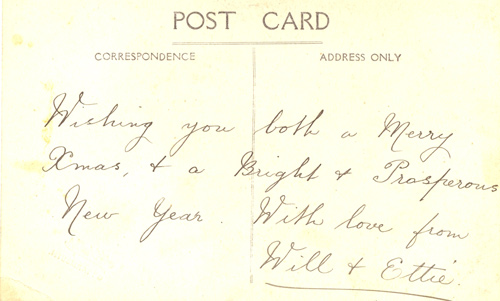 POST CARD
CORRESPONDENCE
ADDRESS ONLY
Wishing you both a Merry
Xmas, & a Bright & Prosperous
New Year. With love from
Will & Ettie.